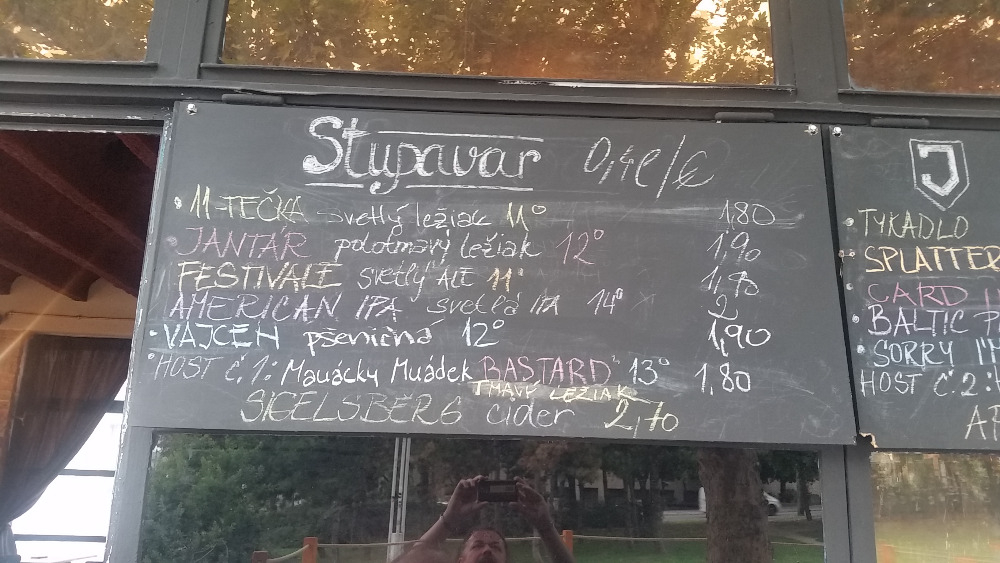 Stupavar 0,4l/€
11-TEČKA svetlý ležiak 11° 1,80
JANTÁR polotmavý ležiak 12° 1,90
FESTIVALE svetlý ALE 11°
AMERICAN IPA svetlá IPA 14° 2
VAJCEN pšeničná 12° 1,90
HOST č.1: Mauácky Muádek "BASTARD" 13° 1,80
TMAVÝ LEŽIAK
SIGELSBERG cider 2,70
J
TYKADLO
SPLATTER
CARD
BALTIC P
SORRY I'M
HOST č.2: